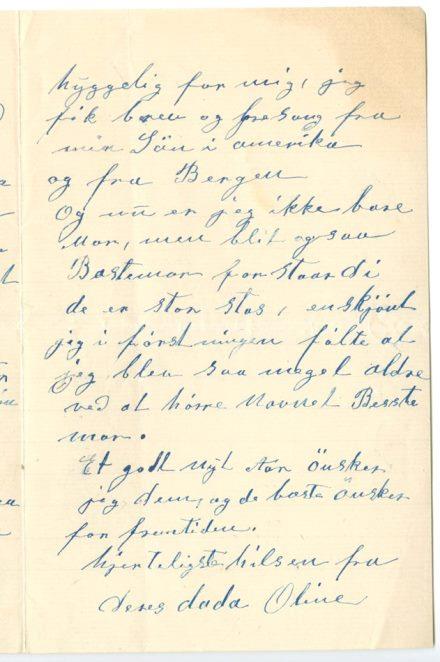 hyggelig for mig, jeg
fik brev og presang fra
min Sön i amerika
og fra Bergen
Og nu er jeg ikke bare
Mor, men blit ogsaa
Bastemor forstaar di
de er stor stas, enskjönt
jeg i förstningen fölte at
jeg blev saa meget aldre
ved at hörre Navnet Besste
mor.
Et godt nyt Aar önsker
jeg dem, og de basta önsker
for fremtiden.
hjerteligste hilsen fra
Deres dada Oline